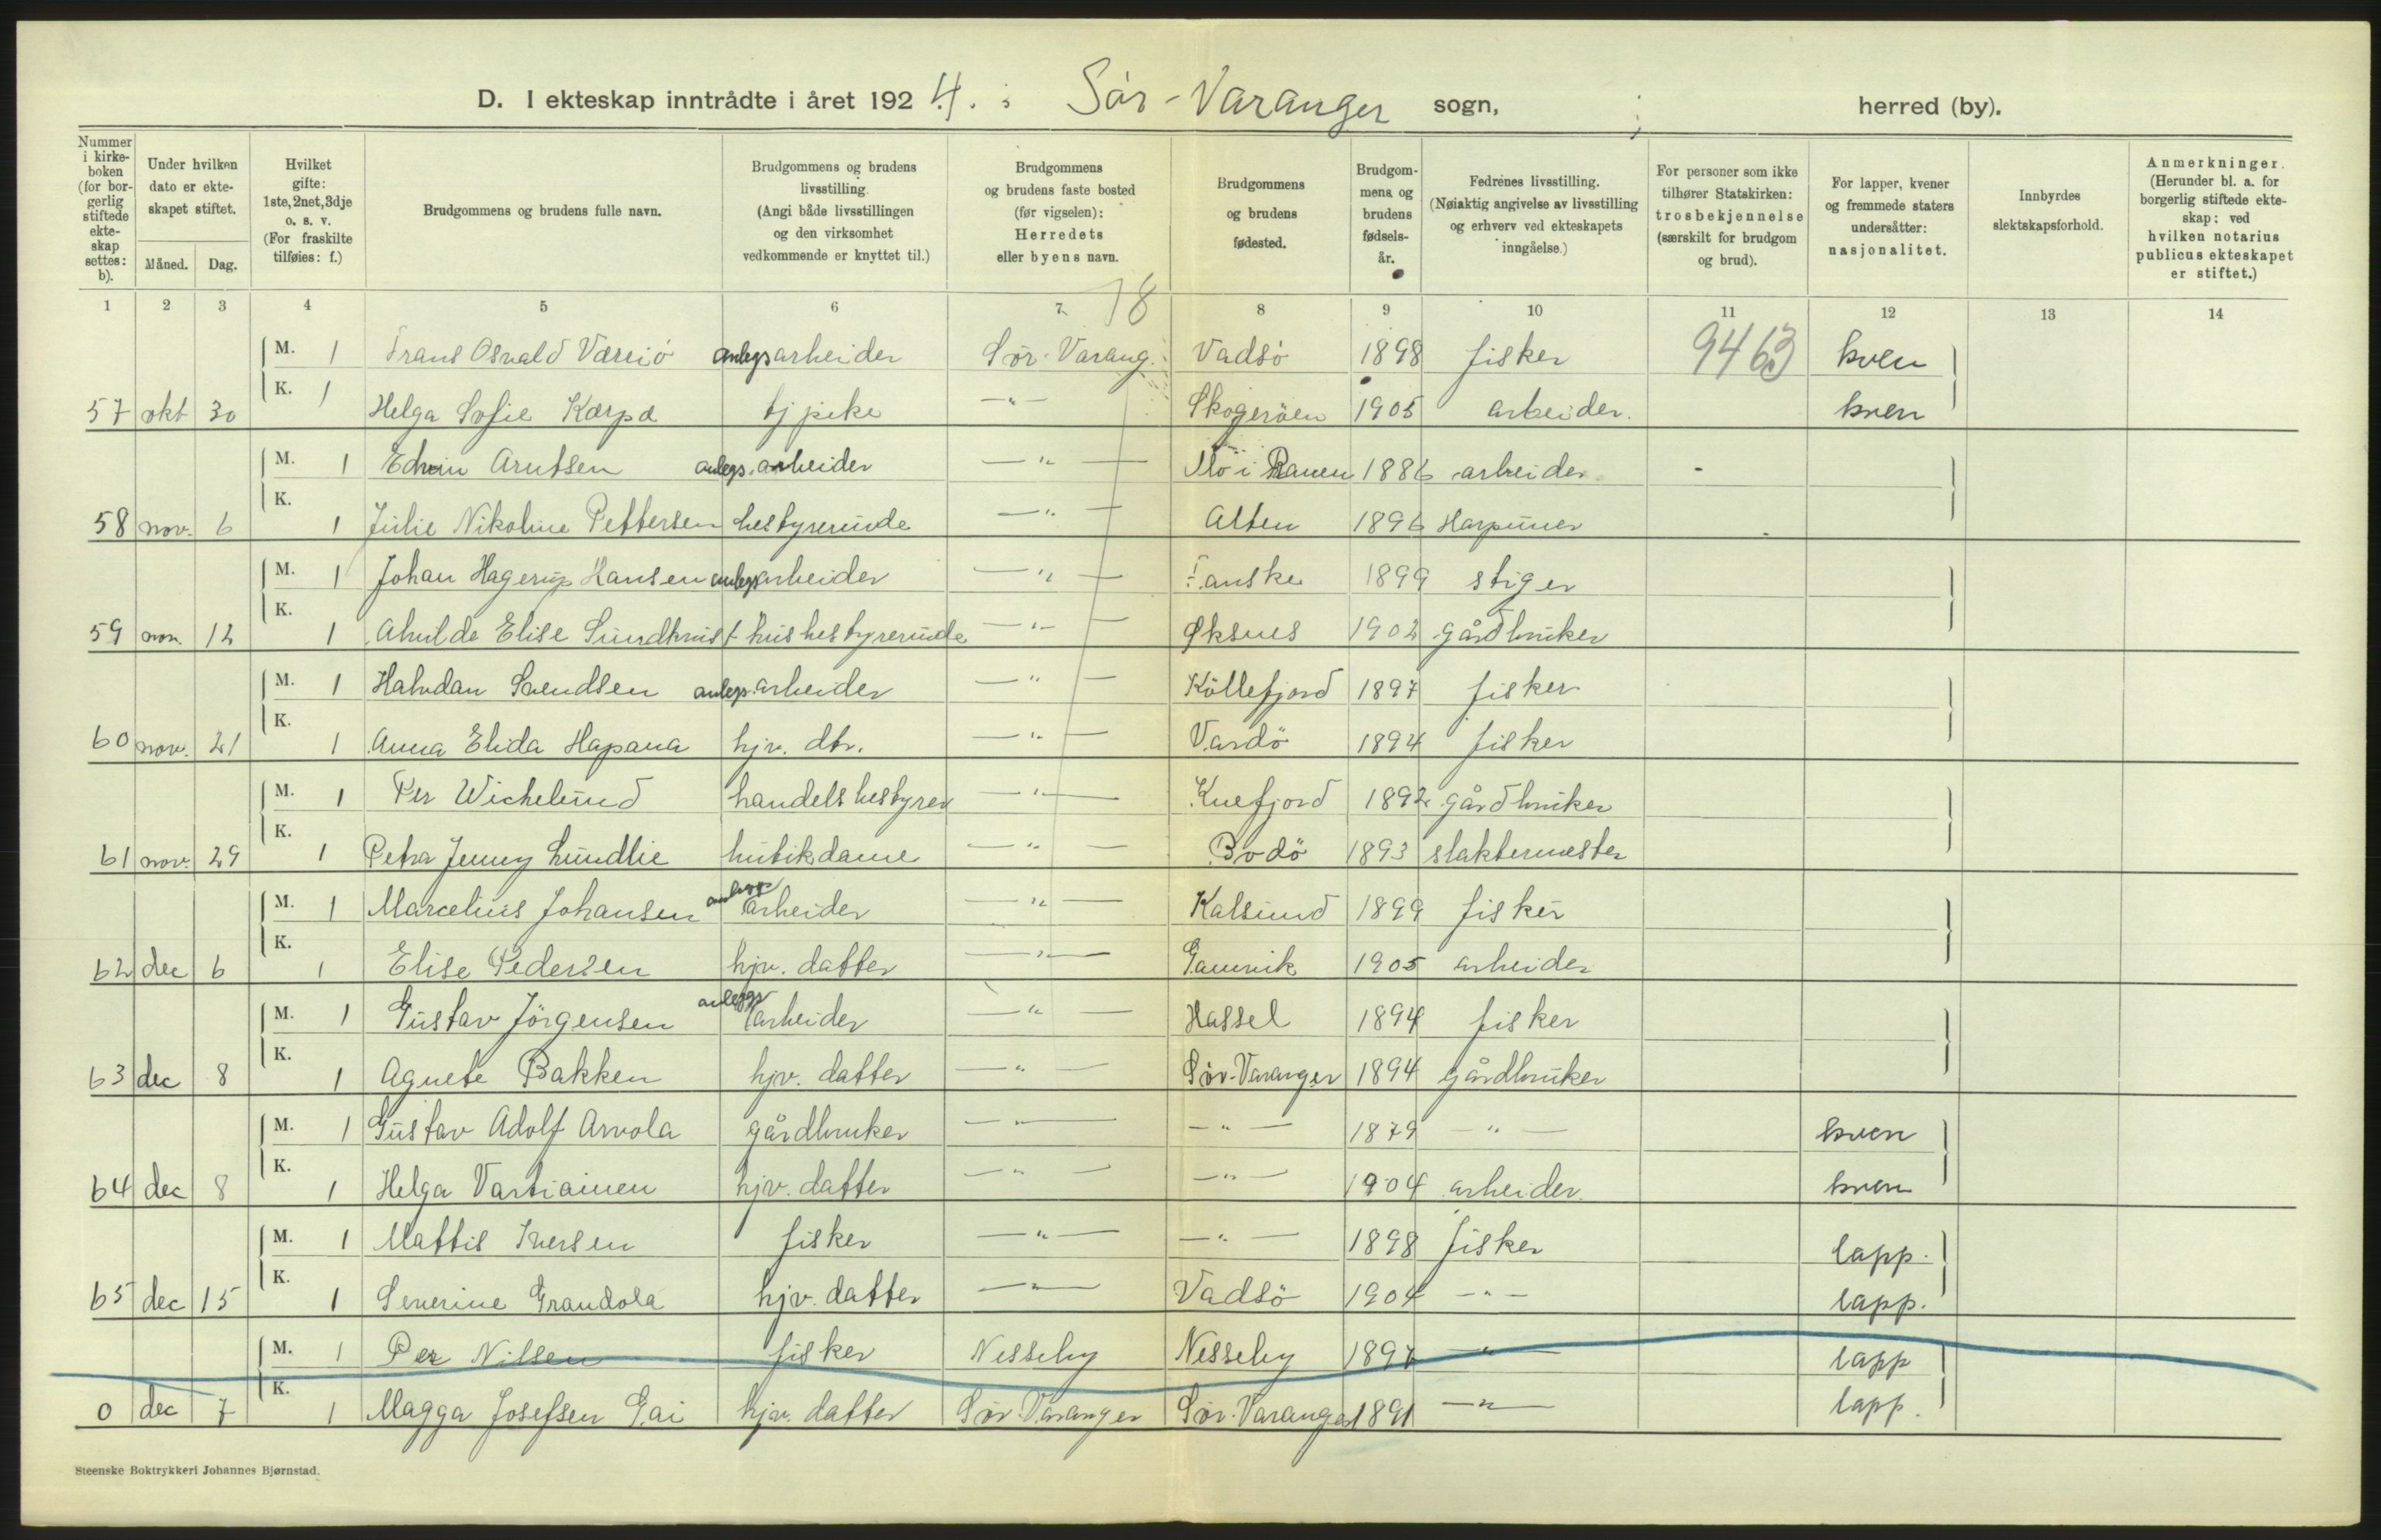 D. I ekteskap inntrådte i året 1924. i Sör-Varanger sogn, herred (by).
Nummer i kirkeboken (for borgerlig stiftede ekteskap settes: b).
Under hvilken dato er ekteskapet stiftet.
Måned. Dag.
Hvilket gifte: 1ste, 2net, 3dje o. s. v. (For fraskilte tilføies: f.)
Brudgommens og brudens fulle navn.
Brudgommens og brudens livsstilling. (Angi både livsstillingen og den virksomhet vedkommende er knyttet til.)
Brudgommens og brudens faste bosted (før vigselen): Herredets eller byens navn.
Brudgommens og brudens fødested.
Brudgommens og brudens fødselsår.
Fedrenes livsstilling. (Nøiaktig angivelse av livsstilling og erhverv ved ekteskapets inngåelse.)
For personer som ikke tilhører Statskirken: trosbekjennelse (særskilt for brudgom og brud).
For lapper, kvener og fremmede staters undersåtter: nasjonalitet.
Innbyrdes slektskapsforhold.
Anmerkninger. (Herunder bl. a. for borgerlig stiftede ekteskap: ved hvilken notarius publicus ekteskapet er stiftet.)
1 2 3 4 5 6 7 8 9 10 11 12 13 14
18
M. 1 Frans Osvald Væreiö anlegsarbeider Sör-Varang. Vadsö 1898 fisker 9463 kven
57 okt 30 K. 1 Helga Sofie Karpa tj pike -"- Skogeröen 1905 arbeider. kven
M. 1 Edvin Arntsen anlegs.arbeider -"- Mo i Ranen 1886 arbeider
58 nov. 6 K. 1 Julie Nikoline Pettersen bestyrerinde -"- Alten 1896 Harpuner
M. 1 Johan Hagerup Hansen anlegsarbeider -"- Fauske 1899 stiger
59 nov. 12 K. 1 Elise Sundkvist husbestyrerinde -"- Øksnes 1902 gårdbruker
M. 1 Halvdan Svendsen anlegs.arbeider -"- Köllefjord 1897 fisker
60 nov. 21 K. 1 Anna Elida Hapana hjv. dtr. -"- Vardö 1894 fisker
M. 1 Per Wichelund handelsbestyrer -"- Kvefjord 1892 gårdbruker
61 nov. 29 K. 1 Petra Jenny Lundlie butikdame -"- Bodö 1893 slaktermester
M. 1 Marcelius Johansen anlegs arbeider -"- Kalsund 1899 fisker
62 dec 6 K. 1 Elise Pedersen hjv. datter -"- Gamvik 1905 arbeider
M. 1 Gustav Jörgensen anleggs arbeider -"- Hassel 1894 fisker
63 dec 8 K. 1 Agnete Bakken hjv. datter -"- Sör-Varanger 1894 gårdbruker
M. 1 Gustav Adolf Arvola gårdbruker -"- -"- 1879 -"- kven
64 dec 8 K. 1 Helga Vartiainen hjv. datter -"- -"- 1904 arbeider. kven
M. 1 Mattis Iversen fisker -"- -"- 1898 fisker lapp.
65 dec 15 K. 1 Severine Grandola hjv. datter -"- Vadsö 1904 -"- lapp.
M. 1 Per Nilsen fisker Nesseby Nesseby 1897 -"- lapp
0 dec 7 K. 1 Magga Josefsen Gai hjv. datter Sör-Varanger Sör-Varanger 1891 -"- lapp.
Steenske Boktrykkeri Johannes Bjørnstad.